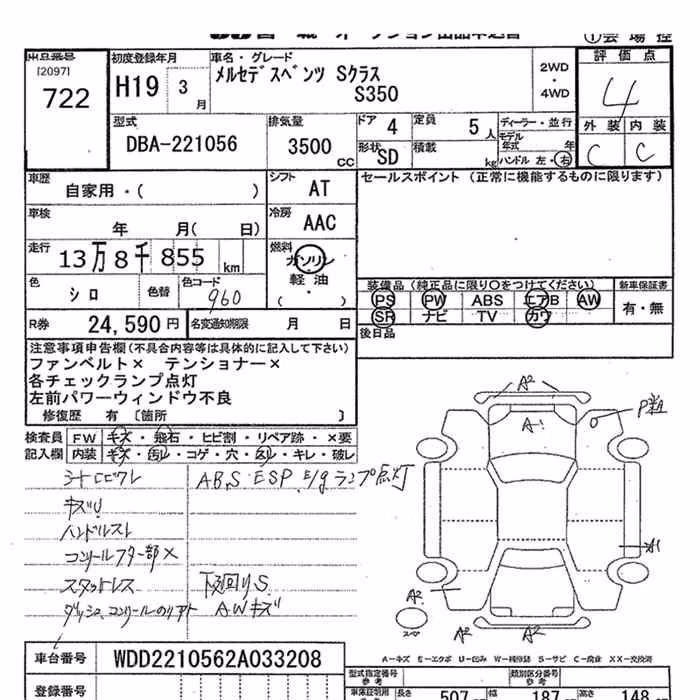 722
[2097]
初度登録年月
H19 3 月
車名・グレード
メルセデスベンツ Sクラス
S350
2WD
・
4WD
評価点
4
外装 内装
C C
型式
DBA-221056
排気量
3500 cc
ドア 4
定員 5 人
形状 SD
積載 kg
ディーラー・並行
モデル年式 年
ハンドル 左・右
車歴
自家用・( )
シフト AT
セールスポイント (正常に機能するものに限ります)
車検
年 月( 日)
冷房 AAC
走行
13万8千855 km
燃料
ガソリン
・
軽油
( ・ )
色
シロ
色替
色コード
960
装備品 (純正品に限り○をつけてください)
PS PW ABS エアB AW
SR ナビ TV カワ
新車保証書
有・無
R券 24,590 円
名変通知期限 月 日
後日品
注意事項申告欄 (不具合内容等は具体的に記入して下さい)
ファンベルト× テンショナー×
各チェックランプ点灯
左前パワーウィンドウ不良
修復歴 有 〔箇所 〕
検査員
記入欄
FW キズ・飛石・ヒビ割・リペア跡・×要
内装 キズ・汚レ・コゲ・穴・スリ・キレ・破レ
キズU
ハンドルスレ
ABS ESP E/gランプ点灯
下廻りS
AWキズ
A2
A1
P粒
A2
A2
A2
スペア
A-キズ E-エクボ U-凹み W-補修跡 S-サビ C-腐食 XX-交換済
車台番号
WDD2210562A033208
登録番号
型式指定番号
参考
類別区分番号
参考
長さ 507 幅 187 高さ 148